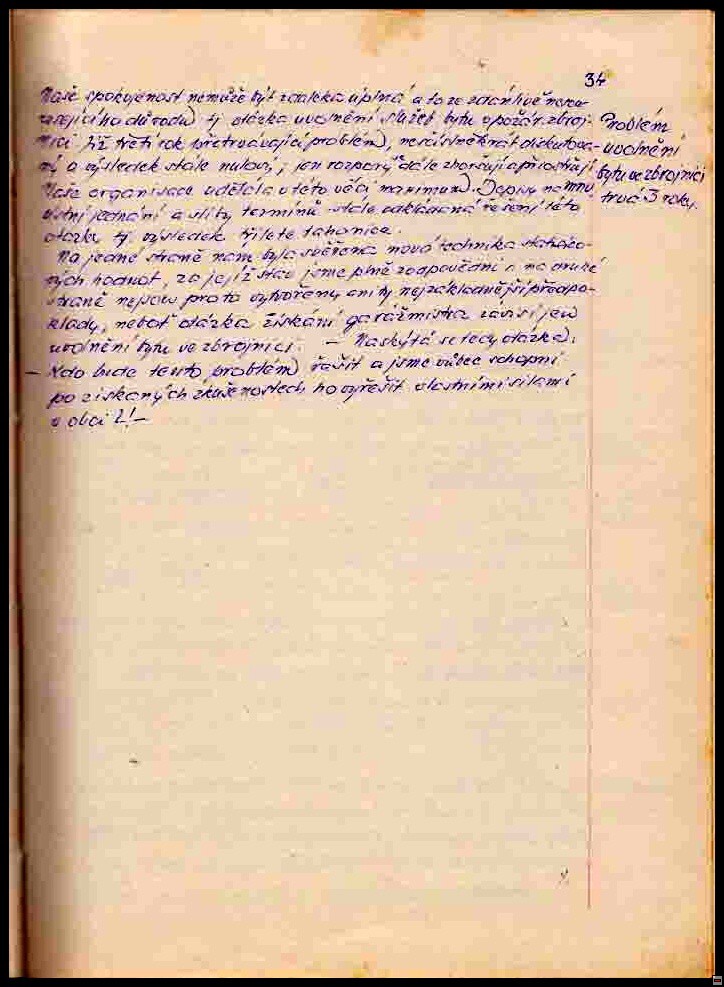 34
Naše spokojenost nemůže být zdaleka úplná a to ze zdánlivě
důvodu tj otázka uvolnění služeb. bytu v požár. zbroj-
nici. Již třetí rok přetrvávající problém, nesčíslněkrát diskutova-
ný a výsledek stále nulový, jen rozpory se dále zhoršují a přiostřují
Naše organisace udělala v této věci maximum. Dopisy
ústní jednání a sliby termínů stále odkládaná řešení této
otázky tj. výsledek tříleté tahanice.
Na jedné straně nám byla svěřena nová technika statisíco-
vých hodnot, za její ž stav jsme plně zodpovědni a na druhé
straně nejsou proto vytvořeny ani ty nejzákladnější předpo-
klady, neboť otázka získání garážmistra závisí jen
uvolnění bytu ve zbrojnici. — Naskýtá se tedy otázka:
— Kdo bude tento problém řešit a jsme vůbec schopni
po získaných zkušenostech ho vyřešit vlastními silami
v obci ?! —
Problém
uvolnění
bytu ve zbrojnici
trvá 3 roky.